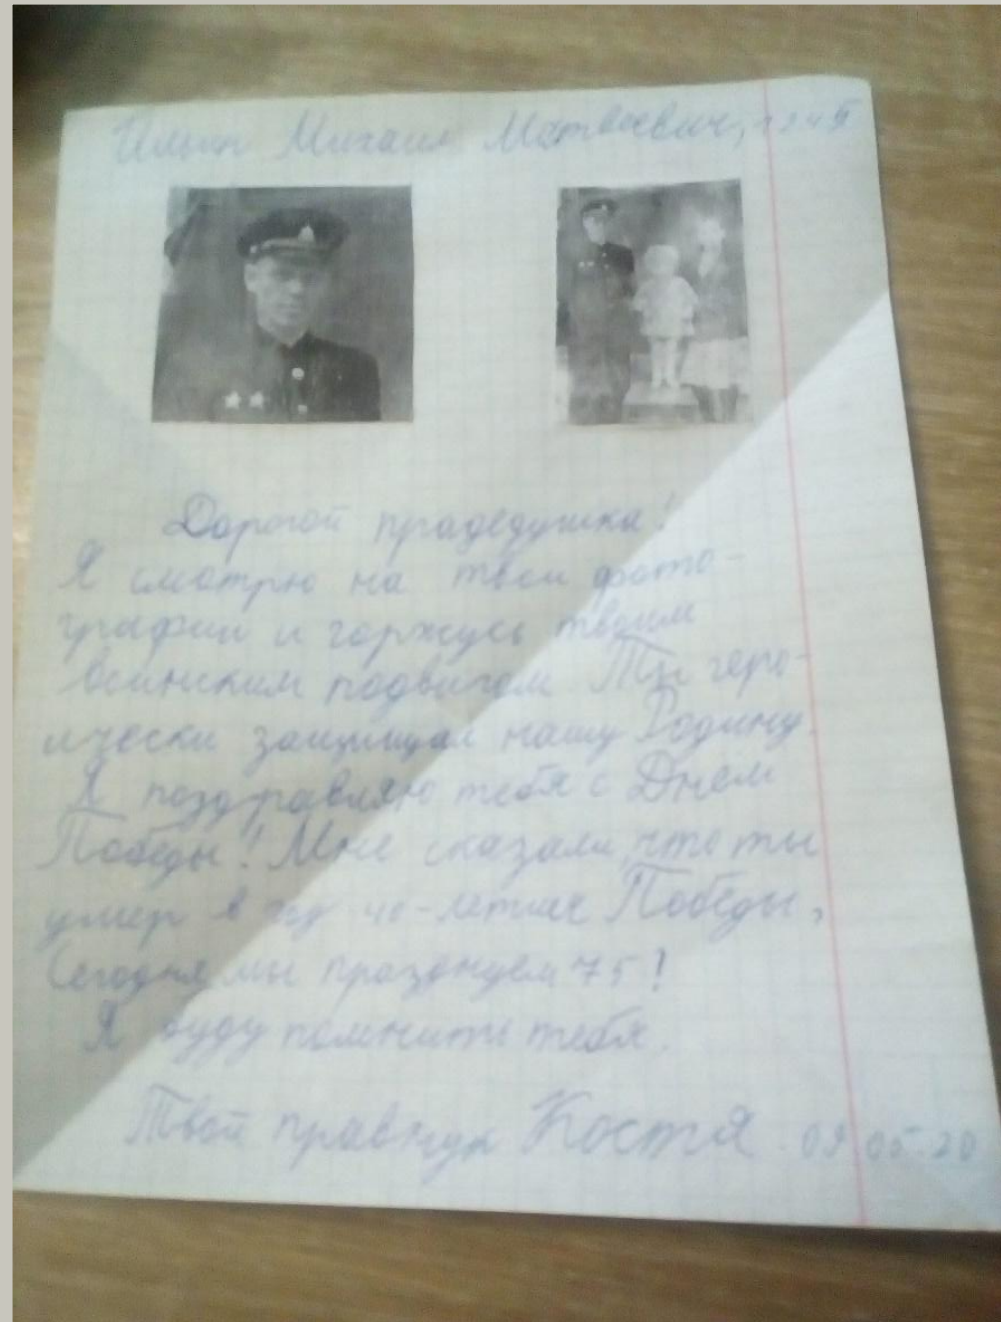 Ильин Михаил Матвеевич, 1945
Дорогой прадедушка!
Я смотрю на твои фото-
графии и горжусь твоим
воинским подвигом. Ты геро-
ически защищал нашу Родину.
Я поздравляю тебя с Днем
Победы! Мне сказали, что ты
умер в год 40-летие Победы,
Сегодня мы празднуем 75!
Я буду помнить тебя.
Твой правнук Костя. 09.05.20